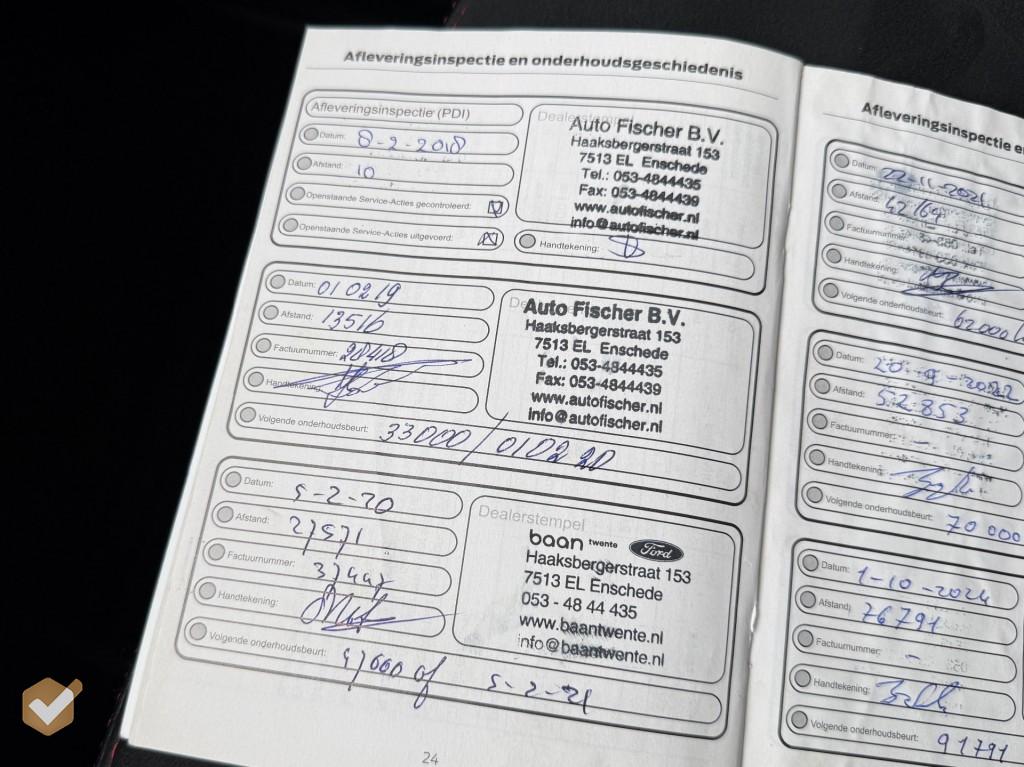 Afleveringsinspectie en onderhoudsgeschiedenis
Afleveringsinspectie (PDI)
Datum: 8-2-2018
Afstand: 10
Openstaande Service-Acties gecontroleerd:
Openstaande Service-Acties uitgevoerd:
Dealerstempel
Auto Fischer B.V.
Haaksbergerstraat 153
7513 EL Enschede
Tel.: 053-4844435
Fax: 053-4844439
www.autofischer.nl
info@autofischer.nl
Handtekening:
Datum: 010219
Afstand: 13516
Factuurnummer: 28418
Handtekening:
Volgende onderhoudsbeurt: 33000/010220
Auto Fischer B.V.
Haaksbergerstraat 153
7513 EL Enschede
Tel.: 053-4844435
Fax: 053-4844439
www.autofischer.nl
info@autofischer.nl
Datum: 5-2-20
Afstand: 27571
Factuurnummer:
Handtekening:
Volgende onderhoudsbeurt: 47000 of 5-2-21
Dealerstempel
baan twente Ford
Haaksbergerstraat 153
7513 EL Enschede
053 - 48 44 435
www.baantwente.nl
info@baantwente.nl
24
Afleveringsinspectie
Datum: 22-11-2021
Afstand: 42169
Factuurnummer:
Handtekening:
Volgende onderhoudsbeurt: 62000
Datum: 20-9-2022
Afstand: 52853
Factuurnummer: -
Handtekening:
Volgende onderhoudsbeurt: 70 000
Datum: 1-10-2024
Afstand: 76791
Factuurnummer: -
Handtekening:
Volgende onderhoudsbeurt: 91791